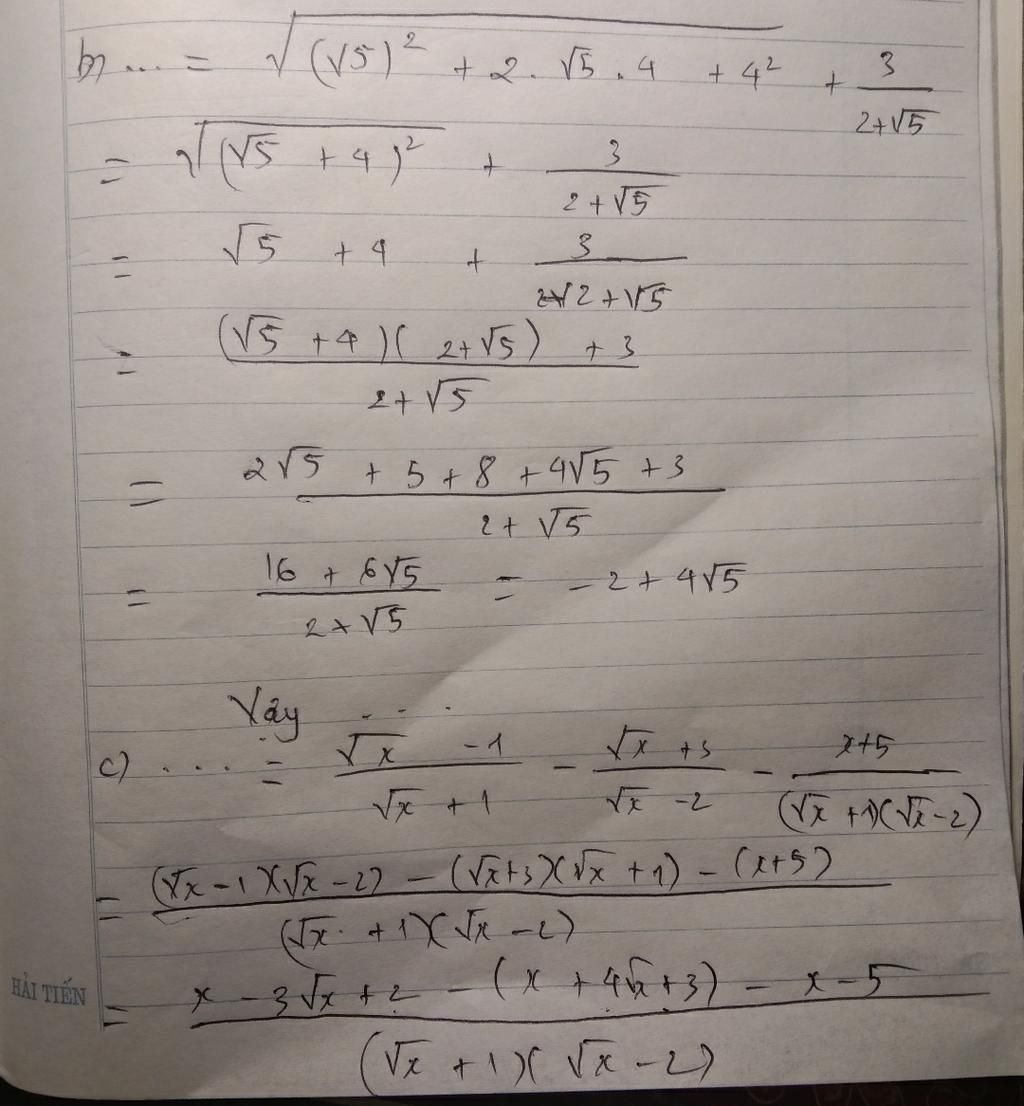 b) ... = √((√5)² + 2 . √5 . 4 + 4²) + 3/(2+√5)
= √((√5 + 4)²) + 3/(2+√5)
= √5 + 4 + 3/(2+√5)
= ((√5 + 4)(2+√5) + 3)/(2+√5)
= (2√5 + 5 + 8 + 4√5 + 3)/(2+√5)
= (16 + 6√5)/(2+√5) = -2 + 4√5
Vậy ...
c) .... = (√x - 1)/(√x + 1) - (√x + 3)/(√x - 2) - (x+5)/((√x + 1)(√x - 2))
= ((√x - 1)(√x - 2) - (√x+3)(√x + 1) - (x+5))/((√x + 1)(√x - 2))
HẢI TIẾN
= (x - 3√x + 2 - (x + 4√x + 3) - x - 5)/((√x + 1)(√x - 2))